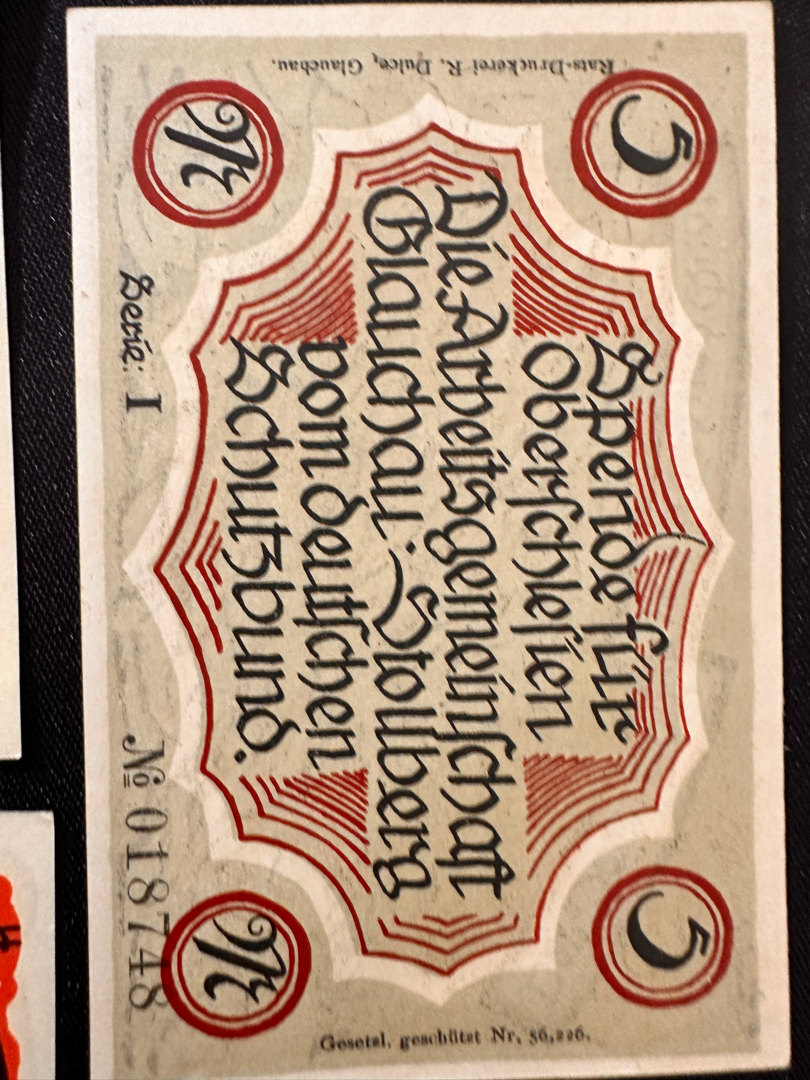 5
5
Spende für
Oberschlesien
Die Arbeitsgemeinschaft
Glauchau-Stollberg
vom deutschen
Schutzbund.
M
M
Serie: I
№ 018748
Rats-Druckerei R. Dulce, Glauchau.
Gesetzl. geschützt Nr. 56,226.